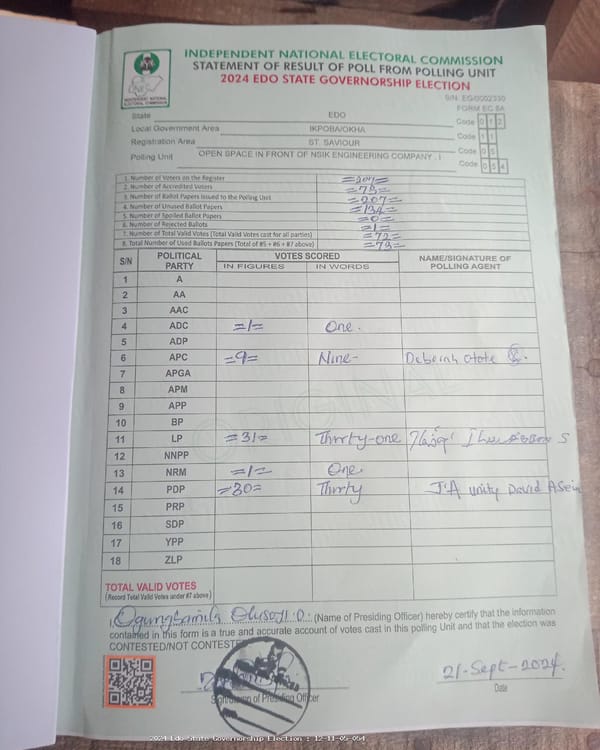 INDEPENDENT NATIONAL ELECTORAL COMMISSION
STATEMENT OF RESULT OF POLL FROM POLLING UNIT
2024 EDO STATE GOVERNORSHIP ELECTION
INDEPENDENT NATIONAL ELECTORAL COMMISSION
FORM EC 8A
State EDO Code 0 1 2
Local Government Area IKPOBA/OKHA Code 1 1
Registration Area ST. SAVIOUR Code 0 5
Polling Unit OPEN SPACE IN FRONT OF NSIK ENGINEERING COMPANY . I Code 0 5 4
1. Number of Voters on the Register =207=
2. Number of Accredited Voters =73=
3. Number of Ballot Papers Issued to the Polling Unit =207=
4. Number of Unused Ballot Papers =134=
5. Number of Spoiled Ballot Papers =0=
6. Number of Rejected Ballots =1=
7. Number of Total Valid Votes (Total Valid Votes cast for all parties) =72=
8. Total Number of Used Ballots Papers (Total of #5 + #6 + #7 above) =73=
S/N POLITICAL PARTY VOTES SCORED NAME/SIGNATURE OF POLLING AGENT
IN FIGURES IN WORDS
1 A
2 AA
3 AAC
4 ADC =1= One.
5 ADP
6 APC =9= Nine- Deborah
7 APGA
8 APM
9 APP
10 BP
11 LP =31= Thirty-one
12 NNPP
13 NRM =1= One
14 PDP =30= Thirty unity David
15 PRP
16 SDP
17 YPP
18 ZLP
ORIGINAL
TOTAL VALID VOTES
(Record Total Valid Votes under #7 above)
I, (Name of Presiding Officer) hereby certify that the information
contained in this form is a true and accurate account of votes cast in this polling Unit and that the election was
CONTESTED/NOT CONTEST
of Presiding Officer
21-Sept-2024.
Date
2024 Edo State Governorship Election : 12-11-05-054